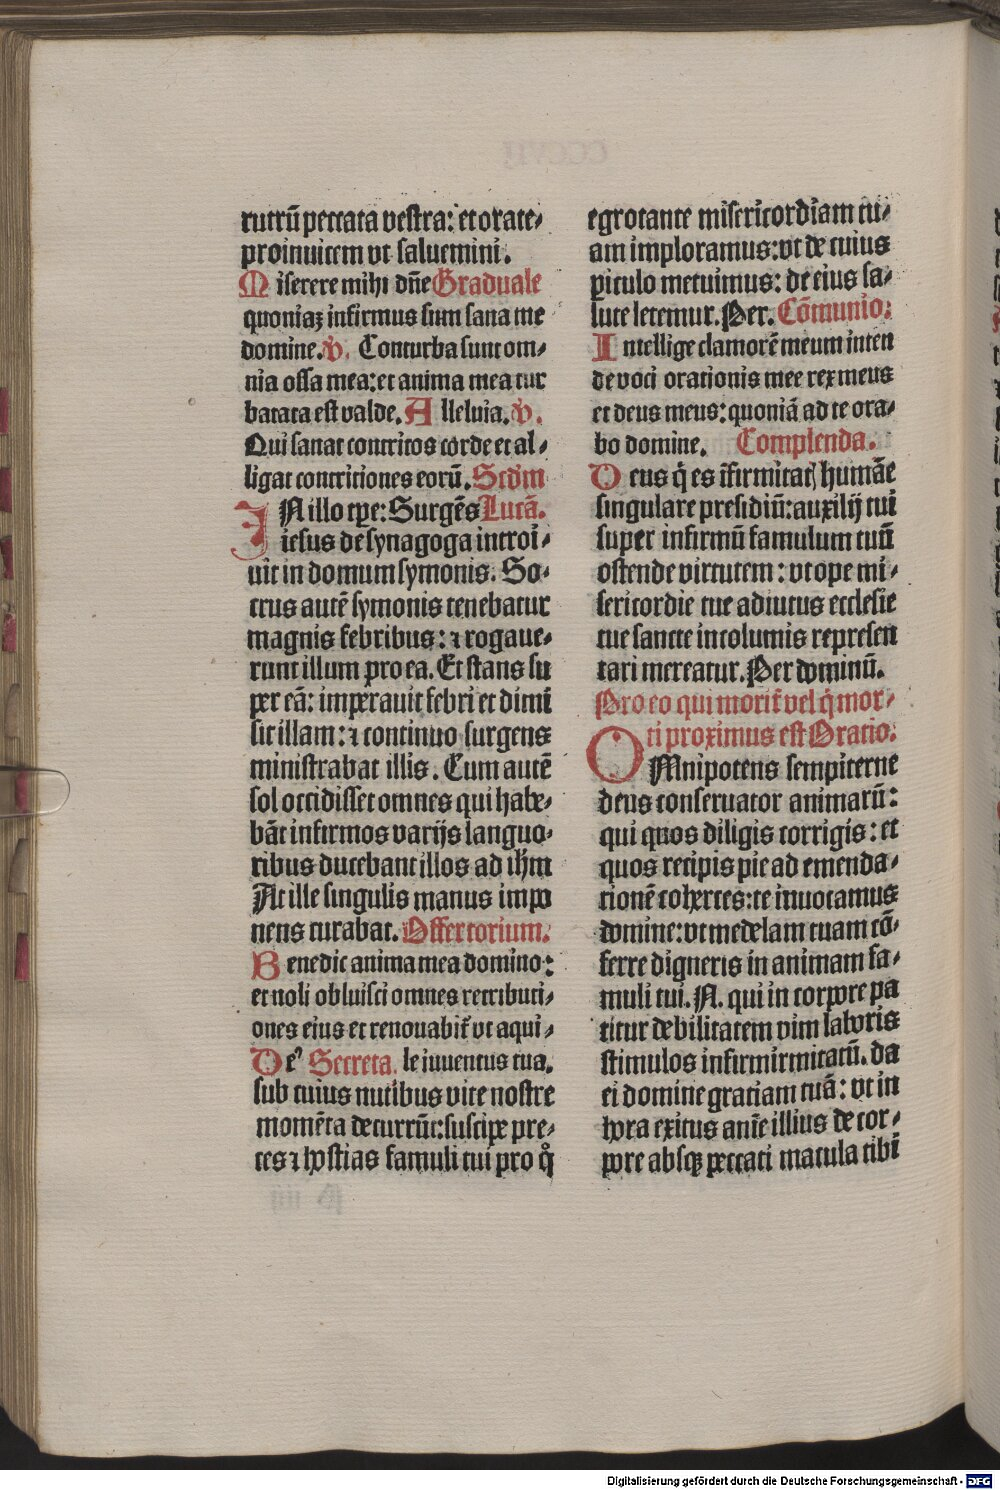 rutrū peccata vestra: et orate-
proinuicem vt saluemini.
Miserere mihi dñe Graduale
quoniaȝ infirmus sum sana me
domine. v. Conturba sunt om-
nia ossa mea: et anima mea tur
batata est valde. Alleluia. v.
Qui sanat contritos corde et al-
ligat contritiones eorū. Scdm
IN illo tp̄e: Surgēs Lucā.
iesus de synagoga introi-
uit in domum symonis. So-
crus autē symonis tenebatur
magnis febribus: ⁊ rogaue-
runt illum pro ea. Et stans su
per eā: imperauit febri et dimi
sit illam: ⁊ continuo surgens
ministrabat illis. Cum autē
sol occidisset omnes qui habe-
bāt infirmos varijs languo-
ribus ducebant illos ad ihm
At ille singulis manus impo
nens curabat. Offertorium.
Benedic anima mea domino:
et noli obliuisci omnes retributi-
ones eius et renouabit̄ vt aqui-
Deꝰ Secreta. le iuuentus tua.
sub cuius nutibus vite nostre
momēta decurrūt: suscipe pre-
ces ⁊ hostias famuli tui pro q̊
egrotante misericordiam tu-
am imploramus: vt de cuius
ꝑiculo metuimus: de eius sa-
lute letemur. Per. Cōmunio:
Intellige clamorē meum inten
de voci orationis mee rex meus
et deus meus: quoniā ad te ora-
bo domine. Complenda.
Deus q̄ es īfirmitatꝭ humāe
singulare presidiū: auxilij tui
super infirmū famulum tuū
ostende virtutem: vt ope mi-
sericordie tue adiutus ecclesie
tue sancte incolumis represen
tari mereatur. Per dominū.
Pro eo qui morit̄ vel q̄ mor-
ti proximus est Oratio:
OMnipotens sempiterne
deus conseruator animarū:
qui quos diligis corrigis: et
quos recipis pie ad emenda-
tionē coherces: te inuocamus
domine: vt medelam tuam cō-
ferre digneris in animam fa-
muli tui. N. qui in corpore pa
titur debilitatem vim laboris
stimulos infirmirmitatū. da
ei domine gratiam tuā: vt in
hora exitus aīe illius de cor-
pore absqȝ peccati macula tibi
Digitalisierung gefördert durch die Deutsche Forschungsgemeinschaft - DFG